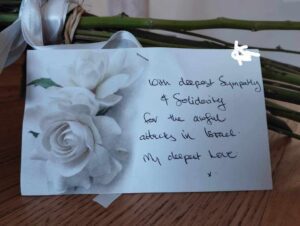 With deepest Sympathy
& Solidarity
for the awful
attacks in Israel.
My deepest Love
x